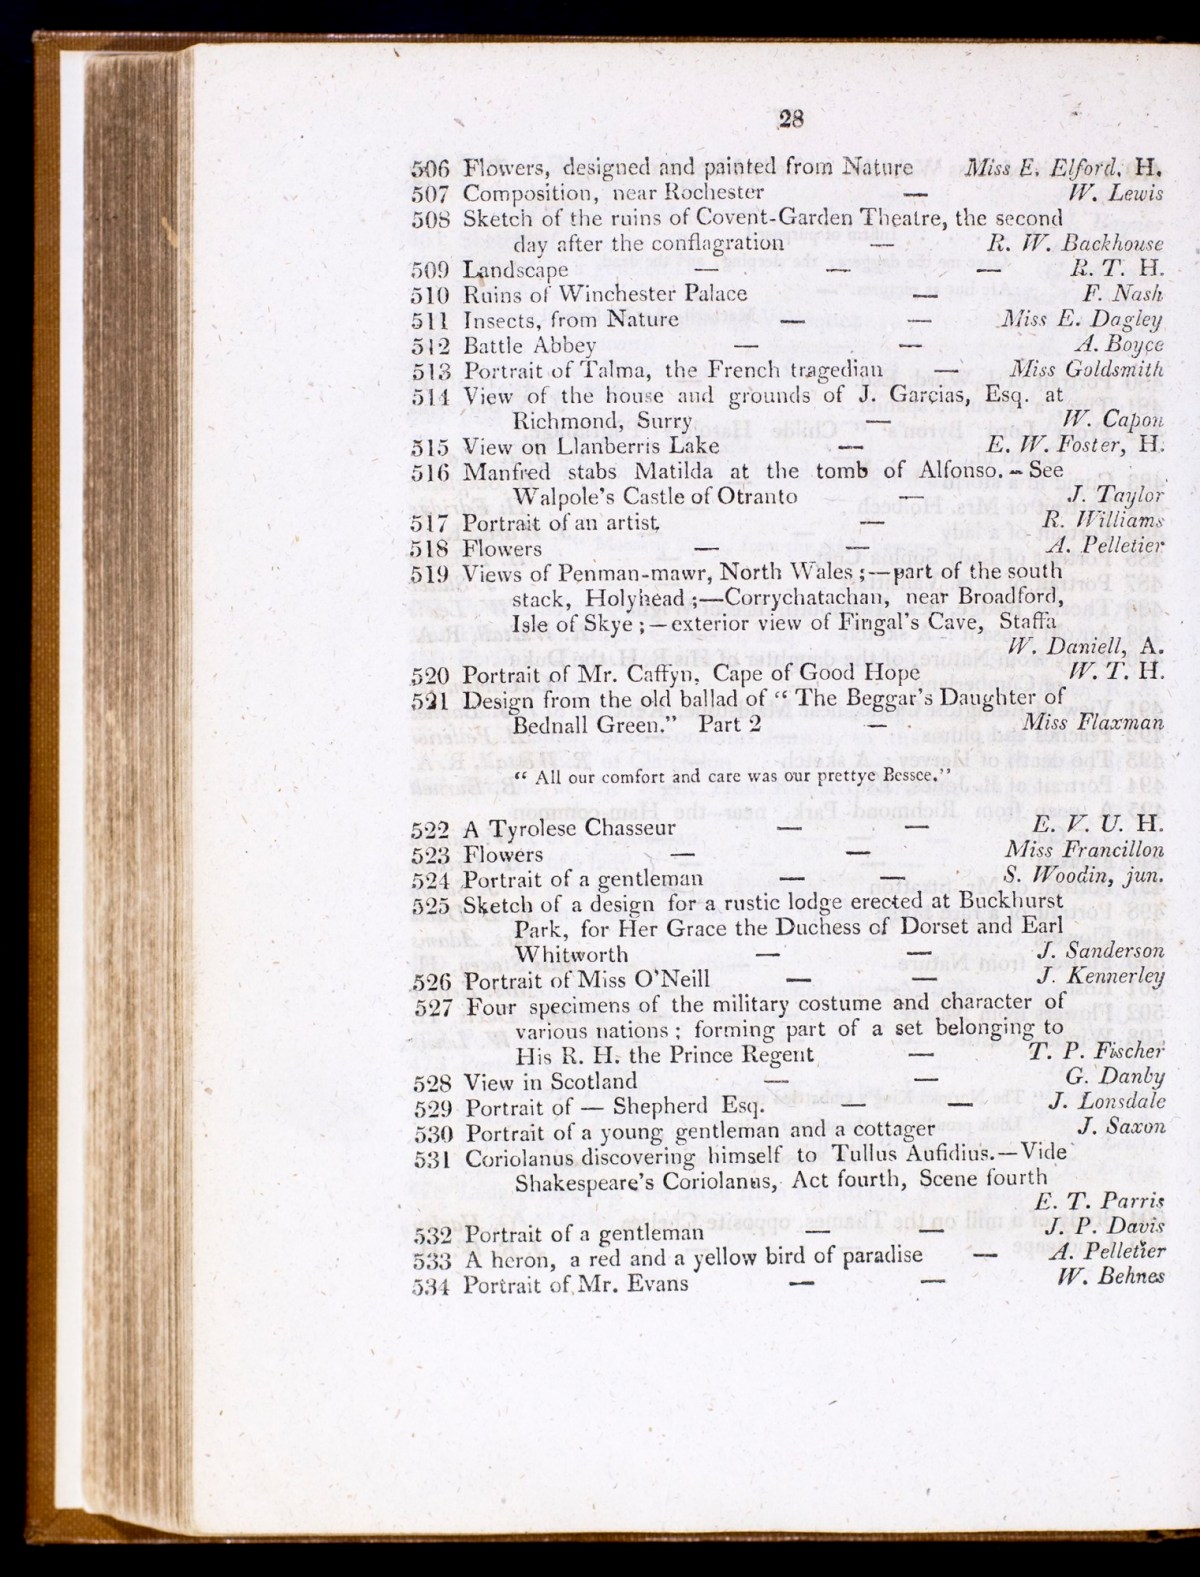 28
506 Flowers, designed and painted from Nature Miss E. Elford, H.
507 Composition, near Rochester — W. Lewis
508 Sketch of the ruins of Covent-Garden Theatre, the second
day after the conflagration — R. W. Backhouse
509 Landscape — — — R. T. H.
510 Ruins of Winchester Palace — F. Nash
511 Insects, from Nature — — Miss E. Dagley
512 Battle Abbey — — A. Boyce
513 Portrait of Talma, the French tragedian — Miss Goldsmith
514 View of the house and grounds of J. Garcias, Esq. at
Richmond, Surry — W. Capon
515 View on Llanberris Lake — E. W. Foster, H.
516 Manfred stabs Matilda at the tomb of Alfonso. – See
Walpole's Castle of Otranto — J. Taylor
517 Portrait of an artist — R. Williams
518 Flowers — — A. Pelletier
519 Views of Penman-mawr, North Wales ;—part of the south
stack, Holyhead ;—Corrychatachan, near Broadford,
Isle of Skye ; — exterior view of Fingal's Cave, Staffa
W. Daniell, A.
520 Portrait of Mr. Caffyn, Cape of Good Hope W. T. H.
521 Design from the old ballad of “ The Beggar's Daughter of
Bednall Green.” Part 2 — Miss Flaxman
“ All our comfort and care was our prettye Bessee.”
522 A Tyrolese Chasseur — — E. V. U. H.
523 Flowers — — Miss Francillon
524 Portrait of a gentleman — — S. Woodin, jun.
525 Sketch of a design for a rustic lodge erected at Buckhurst
Park, for Her Grace the Duchess of Dorset and Earl
Whitworth — — J. Sanderson
526 Portrait of Miss O'Neill — — J. Kennerley
527 Four specimens of the military costume and character of
various nations ; forming part of a set belonging to
His R. H. the Prince Regent — T. P. Fischer
528 View in Scotland — — G. Danby
529 Portrait of — Shepherd Esq. — — J. Lonsdale
530 Portrait of a young gentleman and a cottager J. Saxon
531 Coriolanus discovering himself to Tullus Aufidius.—Vide
Shakespeare's Coriolanus, Act fourth, Scene fourth
E. T. Parris
532 Portrait of a gentleman — — J. P. Davis
533 A heron, a red and a yellow bird of paradise — A. Pelletier
534 Portrait of Mr. Evans — — W. Behnes